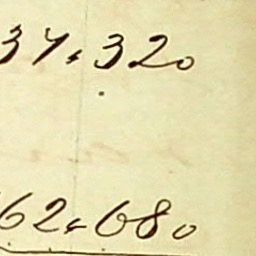 37.320
62.680